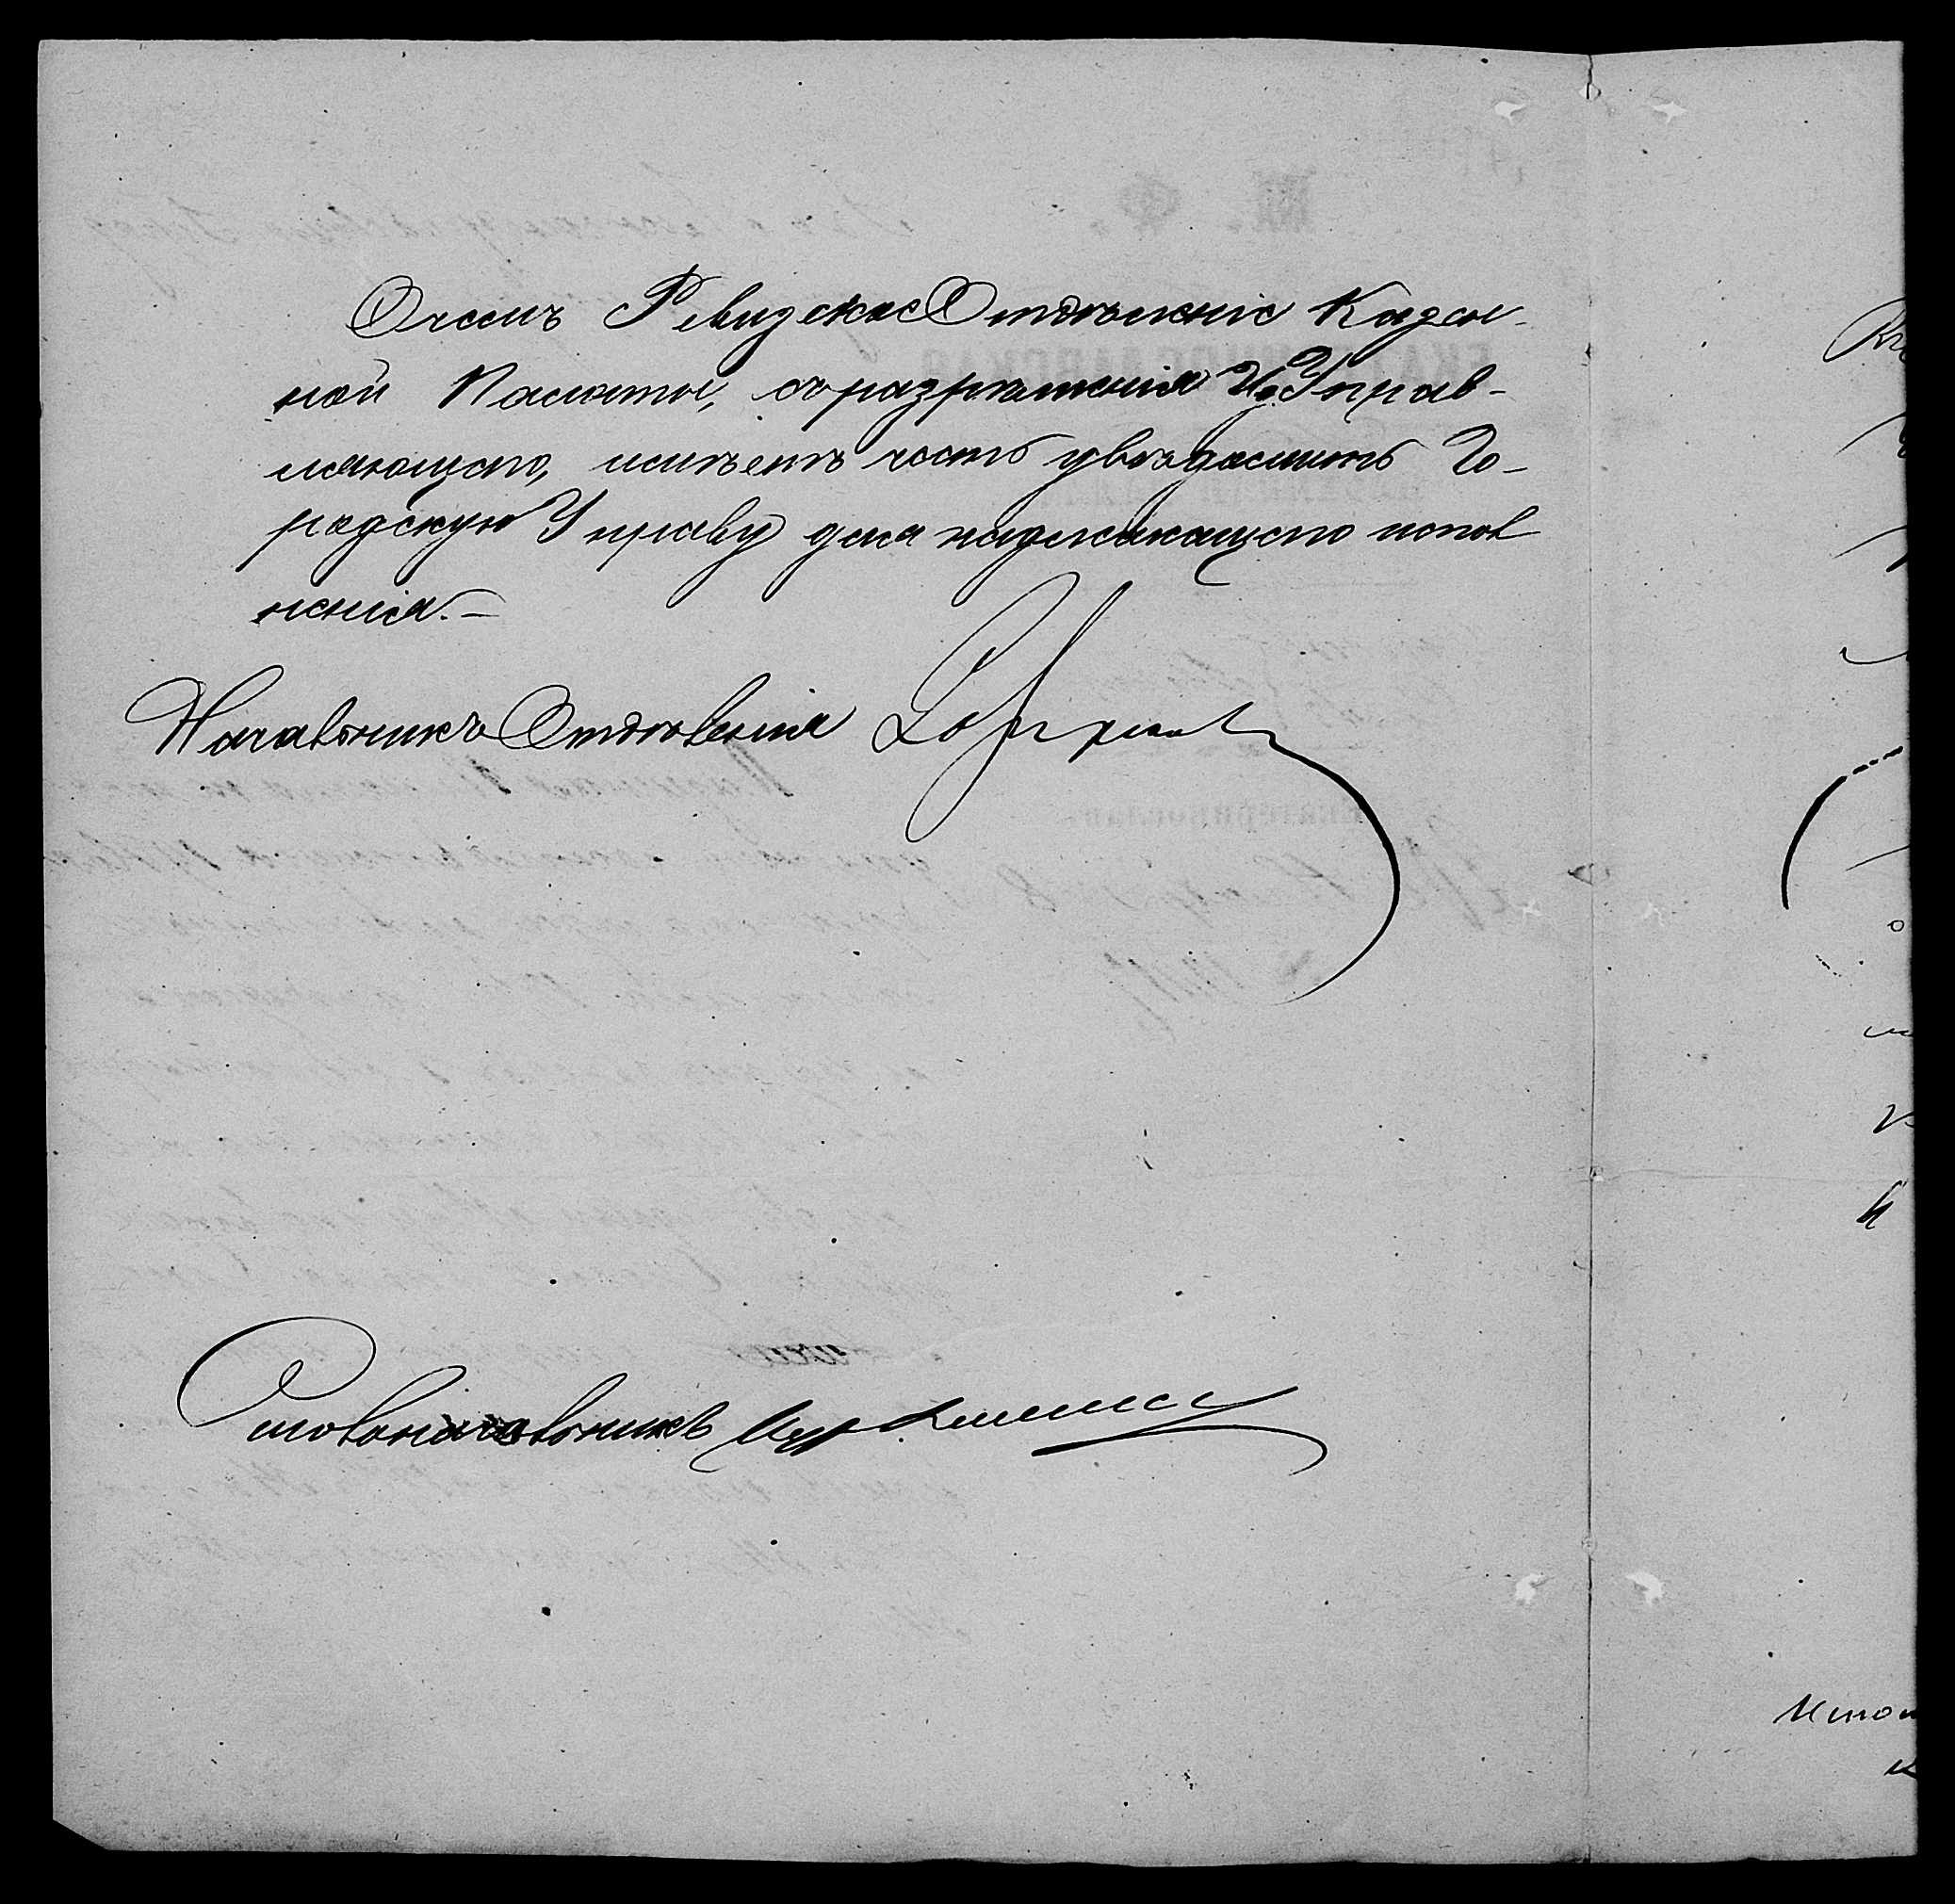 О чемъ Ревизское Отдѣленіе Казен-
ной Палаты, съ разрѣшенія Г. Управ-
ляющаго, имѣетъ честь увѣдомить Го-
родскую Управу для надлежащаго испол
ненія.-
Начальникъ Отдѣленія
Столоначальникъ